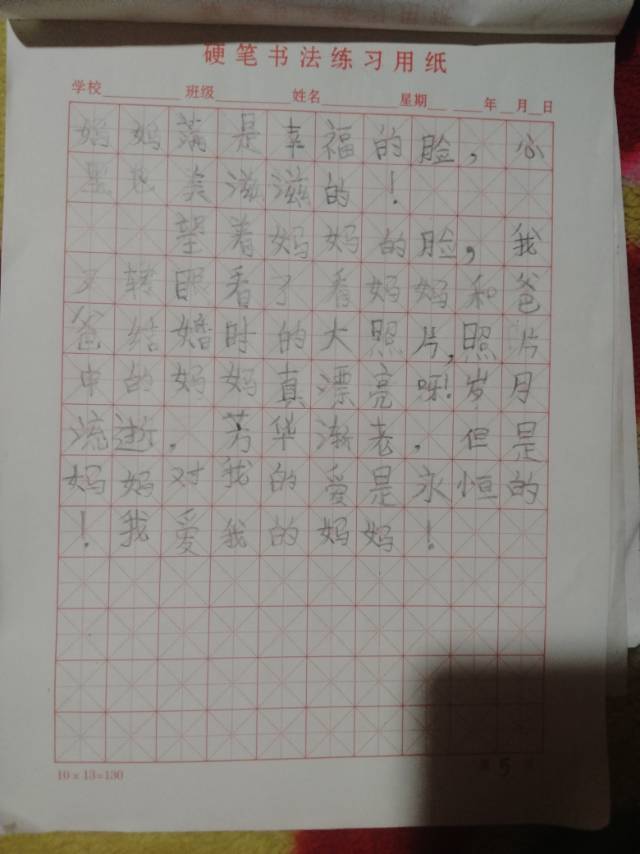 硬笔书法练习用纸
学校 班级 姓名 星期 年 月 日
妈妈满是幸福的脸，心
里也美滋滋的！
望着妈妈的脸，我
又转眼看了看妈妈和爸
爸结婚时的大照片，照片
中的妈妈真漂亮呀！岁月
流逝。芳华渐老。但是
妈妈对我的爱是永恒的
！我爱我的妈妈！
10×13=130
第5